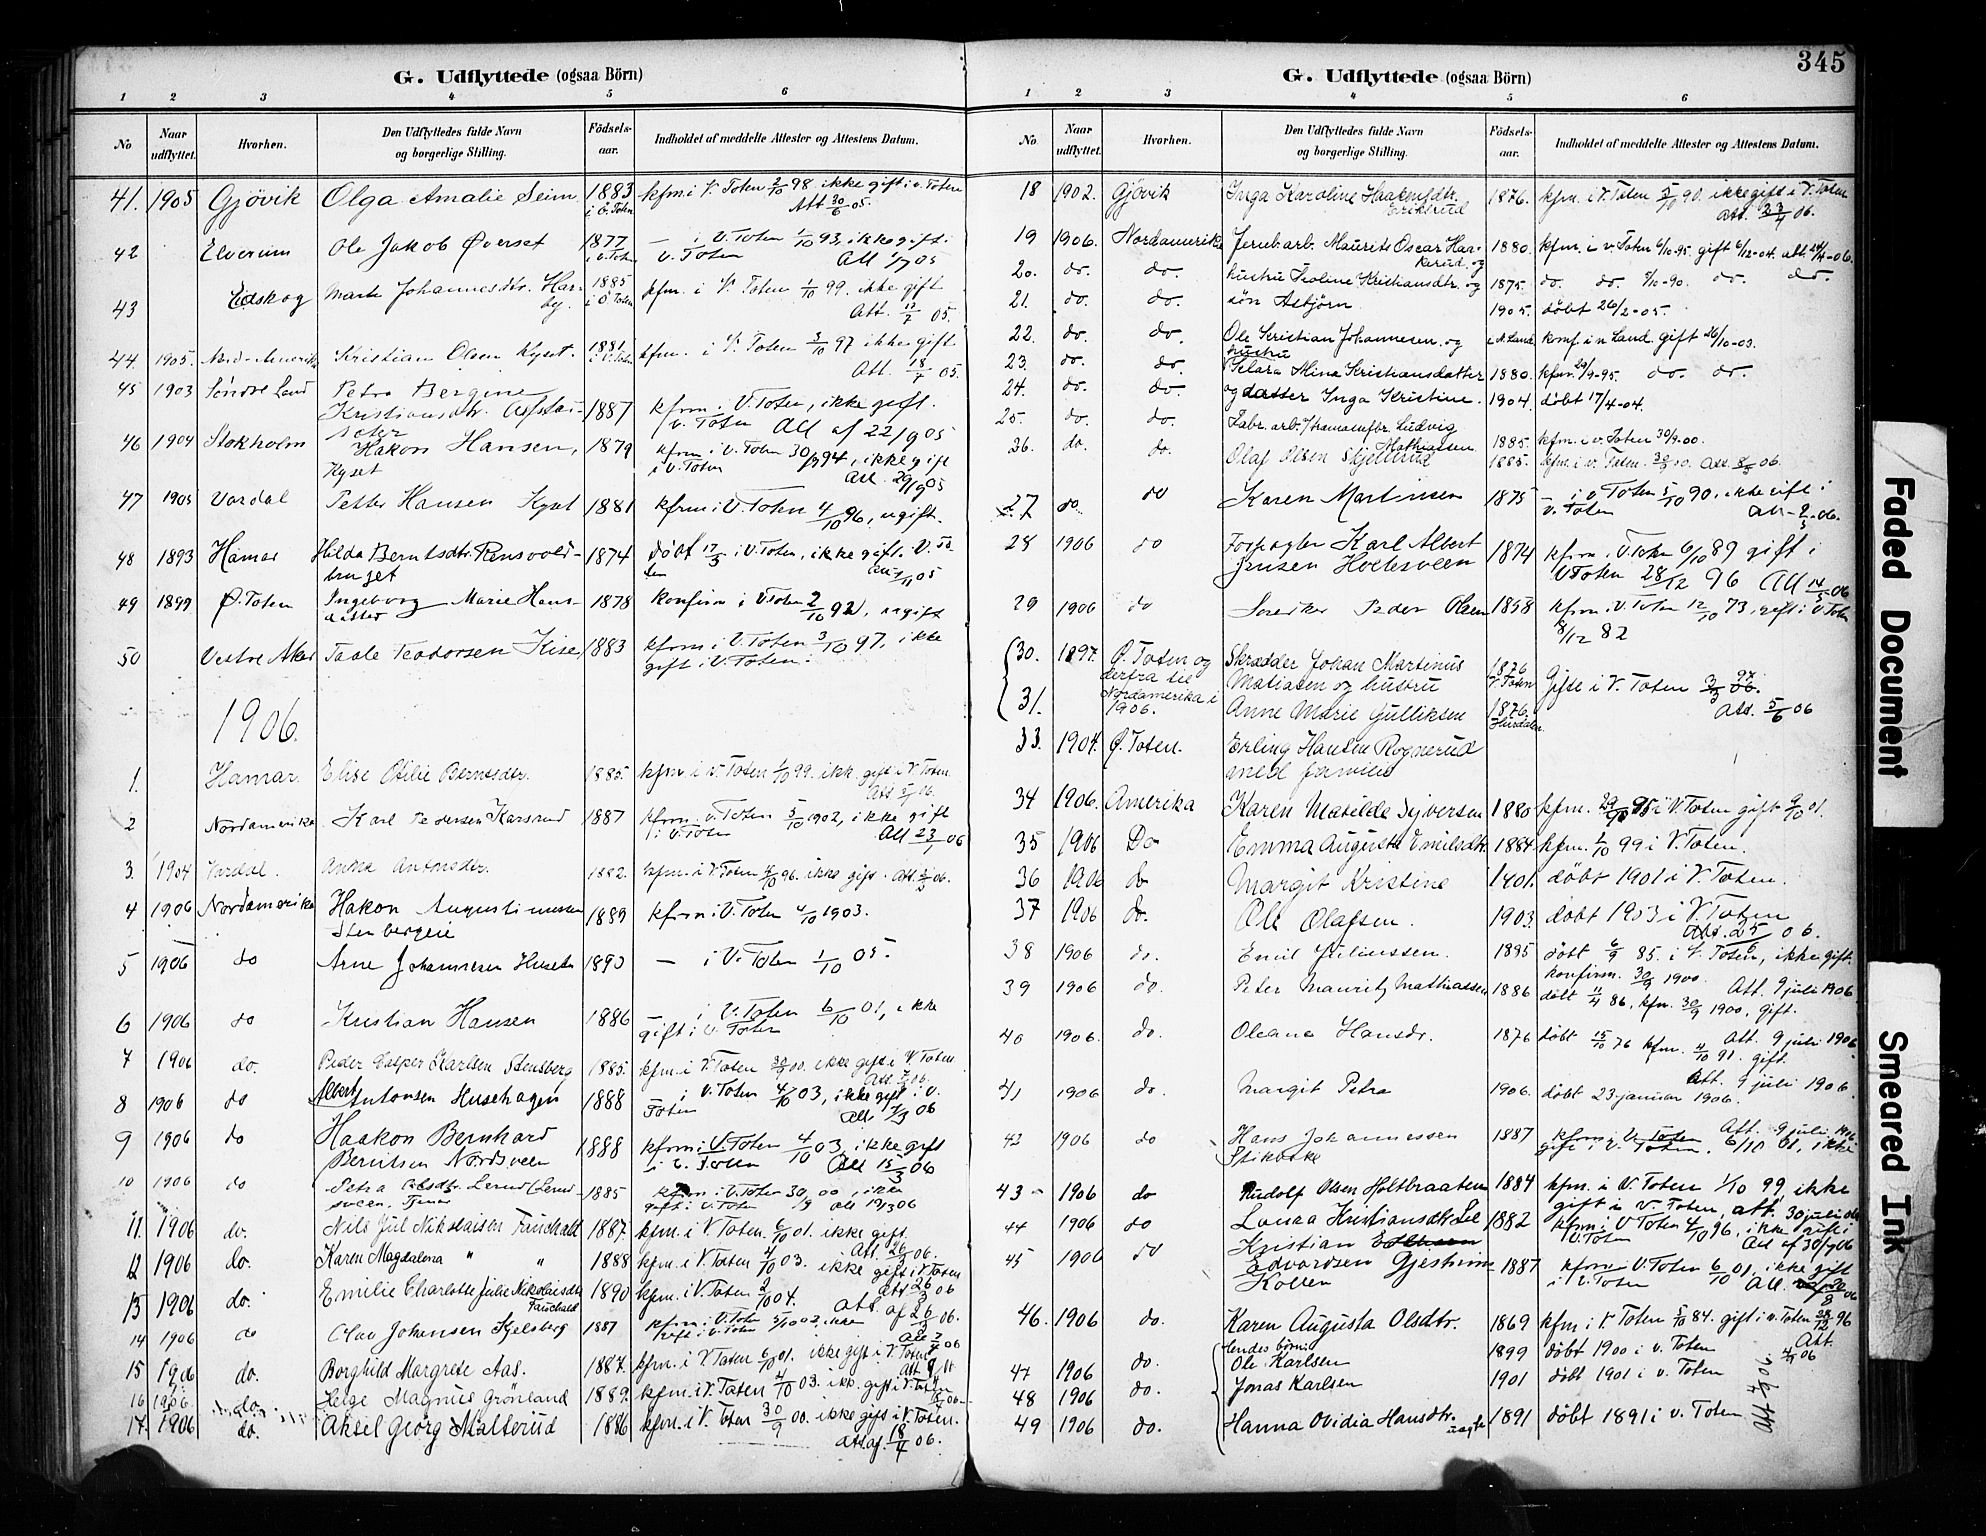 G. Udflyttede (ogsaa Börn)
1 2 3 4 5 6
No Naar udflyttet. Hvorhen. Den Udflyttedes fulde Navn og borgerlige Stilling. Födsels-aar. Indholdet af meddelte Attester og Attestens Datum.
41. 1905 Gjövik Olga Amalie Seim 1883 kfm. i V. Toten 2/10 98. ikke gift i v. Toten
i Ö. Toten Att 30/6 05.
42 Elverum Ole Jakob Øverset 1877 — i V. Toten 1/10 93, ikke gift i
i V. Toten v. Toten
43 Edskog Marte Johannesdtr. Har- 1885 kfm. i V. Toten 1/10 99. ikke gift
by. i Ö Toten Att. 17/7 05.
44. 1905. Nord-Amerika Kristian Olsen Kyset. 1881 kfm. i V. Toten 3/10 97 ikke gift
Att. 05.
45 1903 Söndre Land Petra Bergine
Kristiansdtr. 1887 kfrm. i V. Toten, ikke gift.
i v. Toten Att af 22/9 05
46 1904 Stokholm Hakon Hansen, 1879 kfrm i V. Toten 30/9 94, ikke gift
Kyset i V. Toten Att. 05
47 1905 Vardal Petter Hansen Kyset 1881 kfrm i V. Toten 4/10 96, ugift.
48 1893 Hamar Hilda Berntsdtr. Rensvold- 1874 döbt 17/5 i V. Toten, ikke gift. V. To-
ten 05
49 1899 Ö. Toten Ingeborg Marie Hans- 1878 konfirm i V. Toten 2/10 92, ugift
datter
50 Vestre Aker Taale Teodorsen Hise 1883 kfrm i V. Toten 3/10 97, ikke
gift i V. Toten.
1906.
1. Hamar. Elise Otilie Berntsdtr. 1885. kfm. i V. Toten 1/10 99. ikk. gift i V. Toten.
06.
2 Nordamerika Karl Pedersen Karsrud 1887 kfrm. v. Toten 5/10 1902, ikke gift
i V. Toten Att 23/1 06
3. 1904 Vardal. Anna Antonsdtr. 1882. kfm. i V. Toten 4/10 96. ikke gift. Att. 06.
4 1906 Nordamerika Hakon Augustinussen 1889 kfrm i V. Toten 4/10 1903.
Stenbergeie
5 1906 do Arne Johannesen Huset 1890 — i V. Toten 1/10 05.
6 1906 do Kristian Hansen 1886 — i V. Toten 6/10 01, ikke
gift i V. Toten
7 1906 do. Peder Casper Karlsen Stensberg 1885. kfm. i V. Toten 30/9 00. ikke gift i V. Toten
8 1906 do Albert Antonsen Husehagen 1888 — i V. Toten 4/10 03, ikke gift i V.
Toten Att. 7/3 06
9 1906 do Haakon Bernhard
Berntsen Nordsveen 1888 kfrm i V. Toten 4/10 03, ikke gift
i V. Toten Att 15/3 06
10 1906 do Petra Olsdtr. 1885 kfrm i V. Toten 30/9 00, ikke
gift i V. Toten att 19/3 06
11. 1906 do. Nils Jul Nikolaisen Fauchald 1887. kfm. i V. Toten 6/10 01. ikke gift.
12 1906 do. Karen Magdalena " " 1888 kfm. i V. Toten 4/10 03. ikke gift i V. Toten
Att. 26/3 06.
13 1906 do. Emilie Charlotte Julie Nikolaisdtr 1890 kfm. i V. Toten 2/10 04.
Fauchald Att. af 26/3 06.
14 1906 do Olav Johansen Kjelsberg 1887 kfrm. i V. Toten 5/10 02, ikke
gift i V. Toten
15 1906 do. Borghild Margrete Aas. 1887. kfm. i V. Toten 6/10 01. ikke gift i V. Toten
16 1906 do. Helge Magnus Grönland 1889. kfm. i V. Toten 4/10 03. ikk. gift i V. Tot.
17. 1906 do. Aksel Georg Malterud 1886 kfm. i V. Toten 30/9 00. ikke gift i V. Toten.
Att. af. 18/4 06.
345
G. Udflyttede (ogsaa Börn)
1 2 3 4 5 6
No Naar udflyttet. Hvorhen. Den Udflyttedes fulde Navn og borgerlige Stilling. Födsels-aar. Indholdet af meddelte Attester og Attestens Datum.
18 1902. Gjövik Inga Karoline Haakensdtr. 1876. kfm. i V. Toten 5/10 90. ikke gift i V. Toten
Eriksrud Att. 23/4 06.
19 1906. Nordamerika Jernb.arb. Maurits Oscar Haa- 1880. kfm. i v. Toten 6/10-95. gift 6/12-04. att. 24/4-06.
karud. og
20. do. do. hustru Isoline Kristiansdtr. og 1875. do. do. 5/10-90. do. do.
21. do. do. sön Asbjörn. 1905. döbt 26/2-05.
22. do. do. Ole Kristian Johannesen og i N. Land. konf. i n. Land. gift 26/10-03.
hustru
23. do. do. Klara Mina Kristiansdatter 1880. kfm. 29/9-95. do. do.
24. do. do. og datter Inga Kristine. 1904. döbt 17/4-04.
25. do. do. Fabr. arb. Ludvig
Mathiasen 1885. kfm. i v. Toten 30/9-00.
26. do. do. Olaf Olsen Skjellerud 1885. kfm. i v. Toten. 30/9 00. Att. 06.
27 do do Karen Martinsen 1875 — i V. Toten 5/10 90, ikke gift i
v. Toten Att 06.
28 1906 do Forpagter Karl Albert
Jensen Holtesveen 1874 kfrm. i V. Toten 6/10 89 gift i
V. Toten 28/12 96 Att 14/5 06
29 1906 do Peder Olsen 1858 kfrm. i V. Toten 12/10 73, gift i V. Toten
8/12 82
30. 1897. Ö. Toten og Skrædder Johan Martinus 1876
derfra til Matiasen og hustru V. Toten Gifte i V. Toten 97
31. Nordamerika i Anne Marie Gulliksen 1876. Att. 5/6 06
1906. Hurdalen
33. 1904. Ö. Toten. Erling Hansen Rognerud
med familie
34 1906. Amerika Karen Matilde Syversen 1880 kfm. 95 i V. Toten gift 9/10 01.
35 1906 Do Emma Augusta Emilsdtr 1884 kfm. 1/10 99 i V. Toten.
36 1906 do Margit Kristine 1901. döbt 1901 i V. Toten.
37 1906 do. Ole Olafsen. 1903. döbt 1903 i V. Toten
Att. 25/6 06.
38 1906 do. Emil Juliussen. 1885 döbt 6/9 85. i V. Toten, ikke gift.
konfirm. 30/9 1900. Att. 9 juli 1906
39 1906 do. Peter Mauritz Mathiassen 1886 döbt 11/4 86, kfm. 30/9 1900, gift.
40 1906. do. Oleana Hansdr. 1876 döbt 15/10 76 kfm. 4/10 91. gift. Att. 9 juli 1906.
Att. 9 juli 1906.
41 1906 do Margit Petra 1906. döbt 23 januar 1906.
42 1906 do Hans Johannessen 1887 kfm i V. Toten 6/10 01, ikke Att. 9 juli 1906.
Stikbakke gift i V. Toten.
43 1906 do Rudolf Olsen Holtbraaten 1884 kfm. i V. Toten 1/10 99 ikke
gift i V. Toten, att. 30 juli 06
44 1906 do Lovisa Kristiansdtr Lie 1882 kfrm i V Toten 4/10 96, ikke gift i
V. Toten Att af 30/7 06
45 1906 do Kristian
Edvardsen Gjestrum- 1887 kfrm i V. Toten 6/10 01, ikke gift
Kolsen i V. Toten Att. 06
46. 1906 do. Karen Augusta Olsdtr. 1869 kfm. i V. Toten 5/10 84. gift i v. Toten 28/12 96
hendes börn: Att.
47 1906 do. Ole Karlsen 1899 döbt 1900 i v. Toten 06
48 1906 do. Jonas Karlsen 1901 döbt 1901 i v. Toten
49 1906 do. Hanna Ovidia Hansdtr. 1891 döbt 1891 i v. Toten
ugift
Faded Document
Smeared Ink